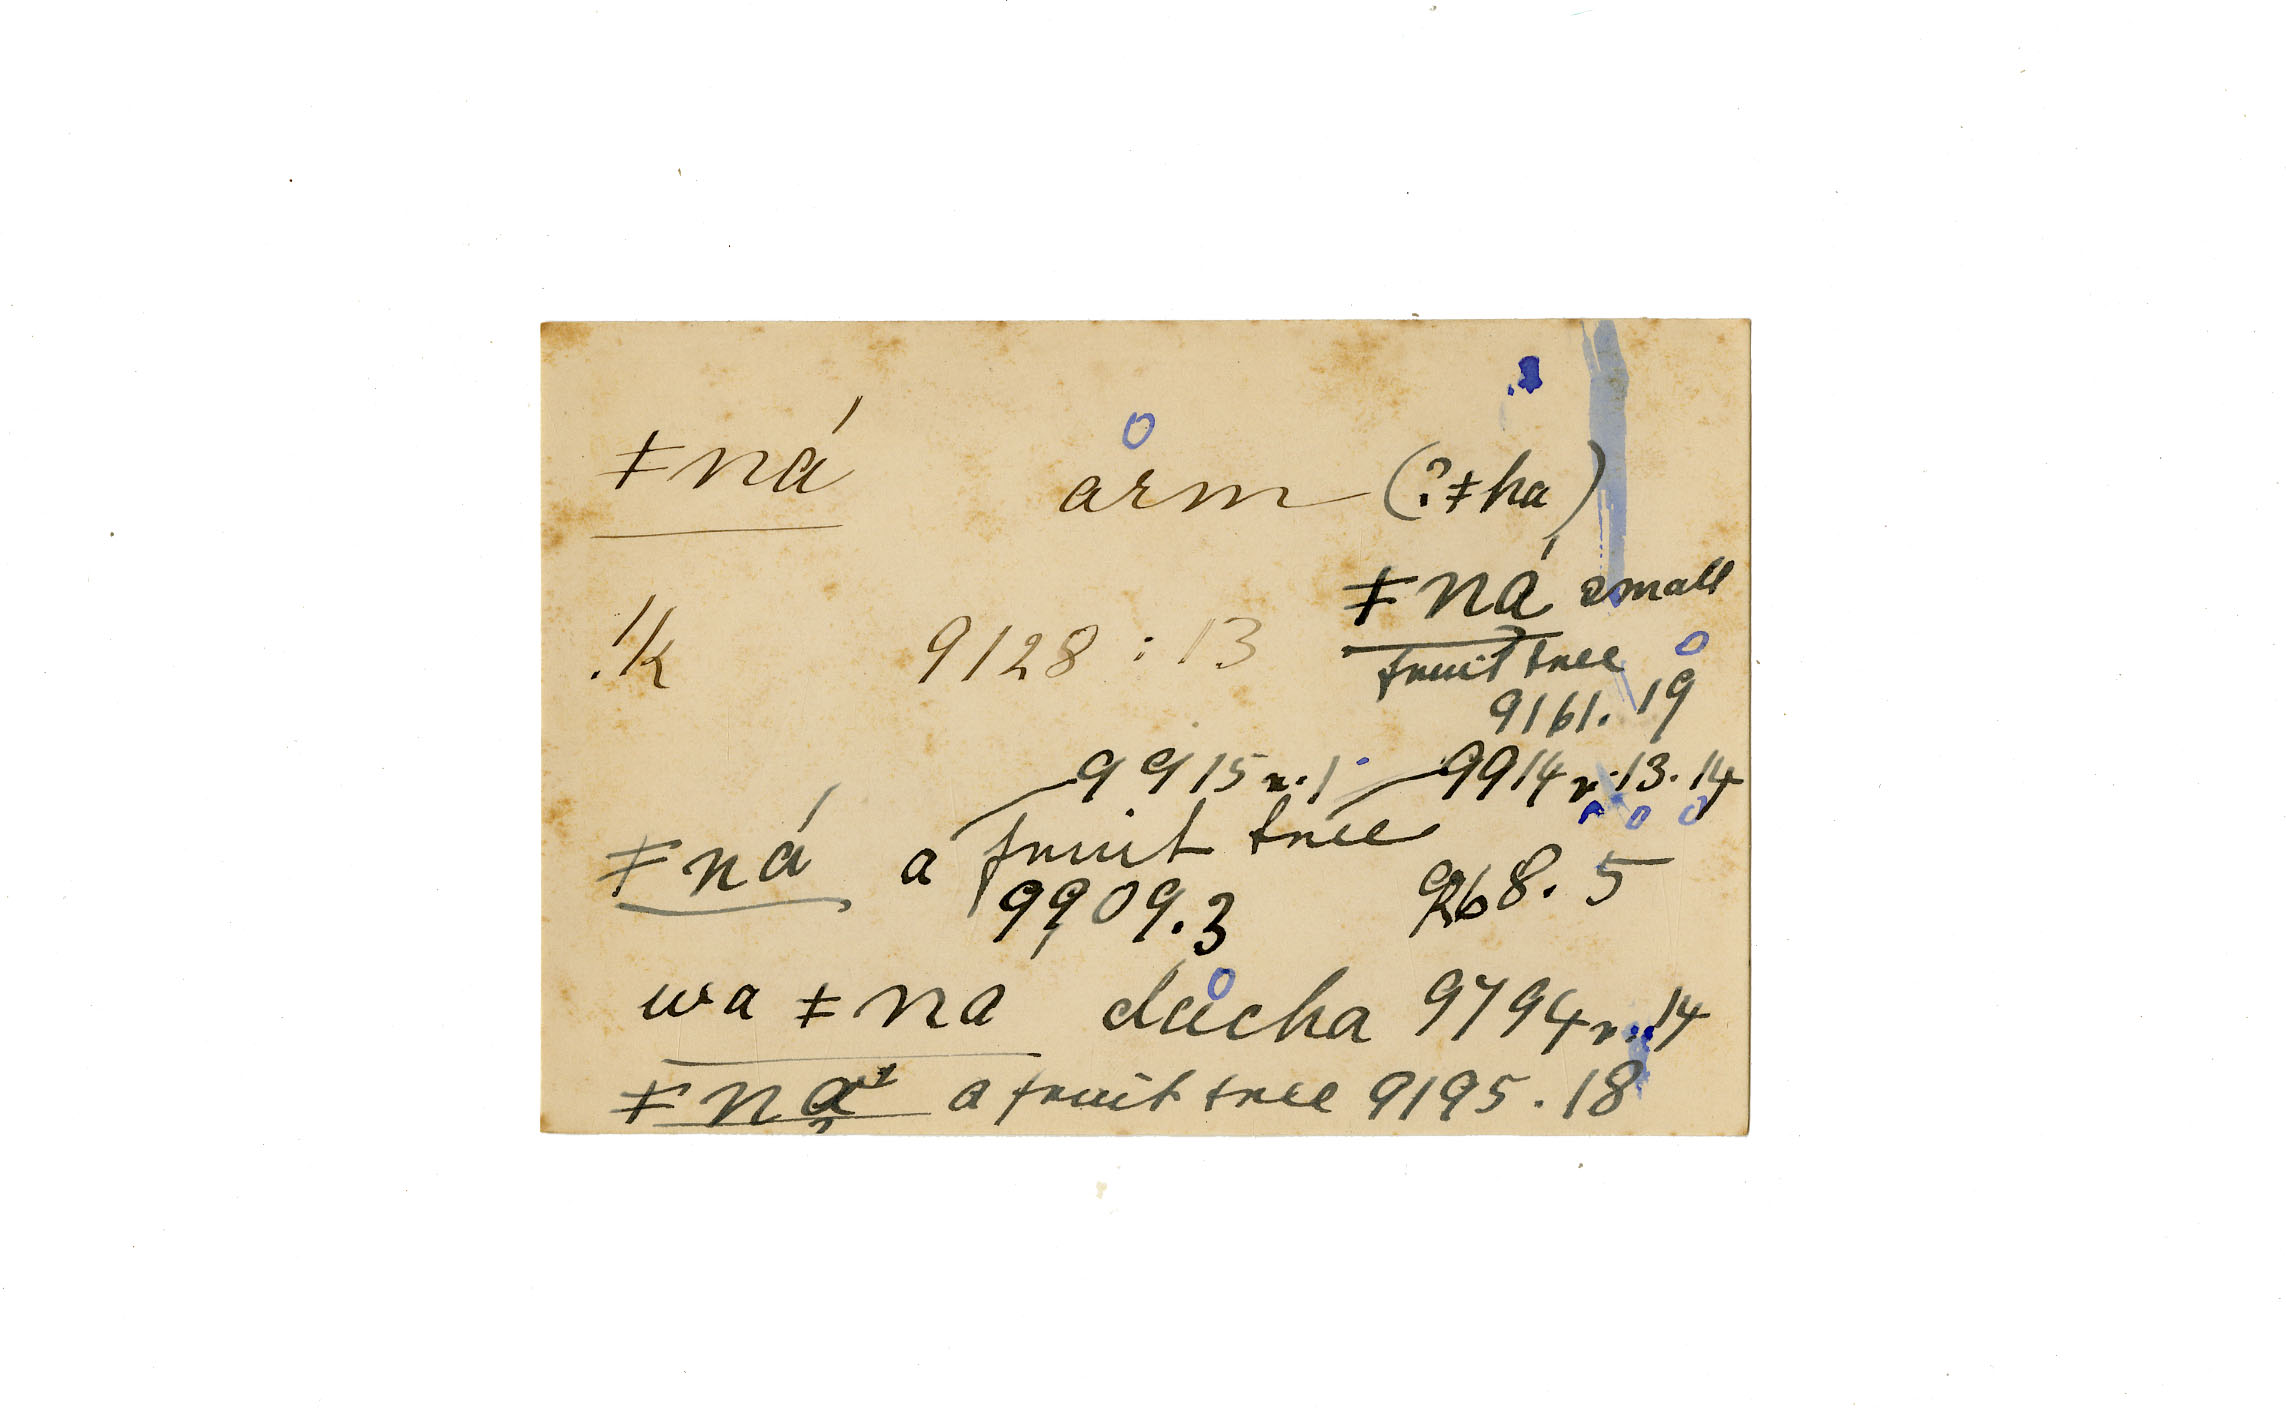 ǂná arm (?ǂha)
ǂná small
fruit tree
!k 9128 : 13
9161. 19
9915 r. 1 9914 r. 13. 14
ǂná a fruit tree
9909.3 68. 5
wa ǂna dácha 9794 r. 14
ǂna a fruit tree 9195. 18